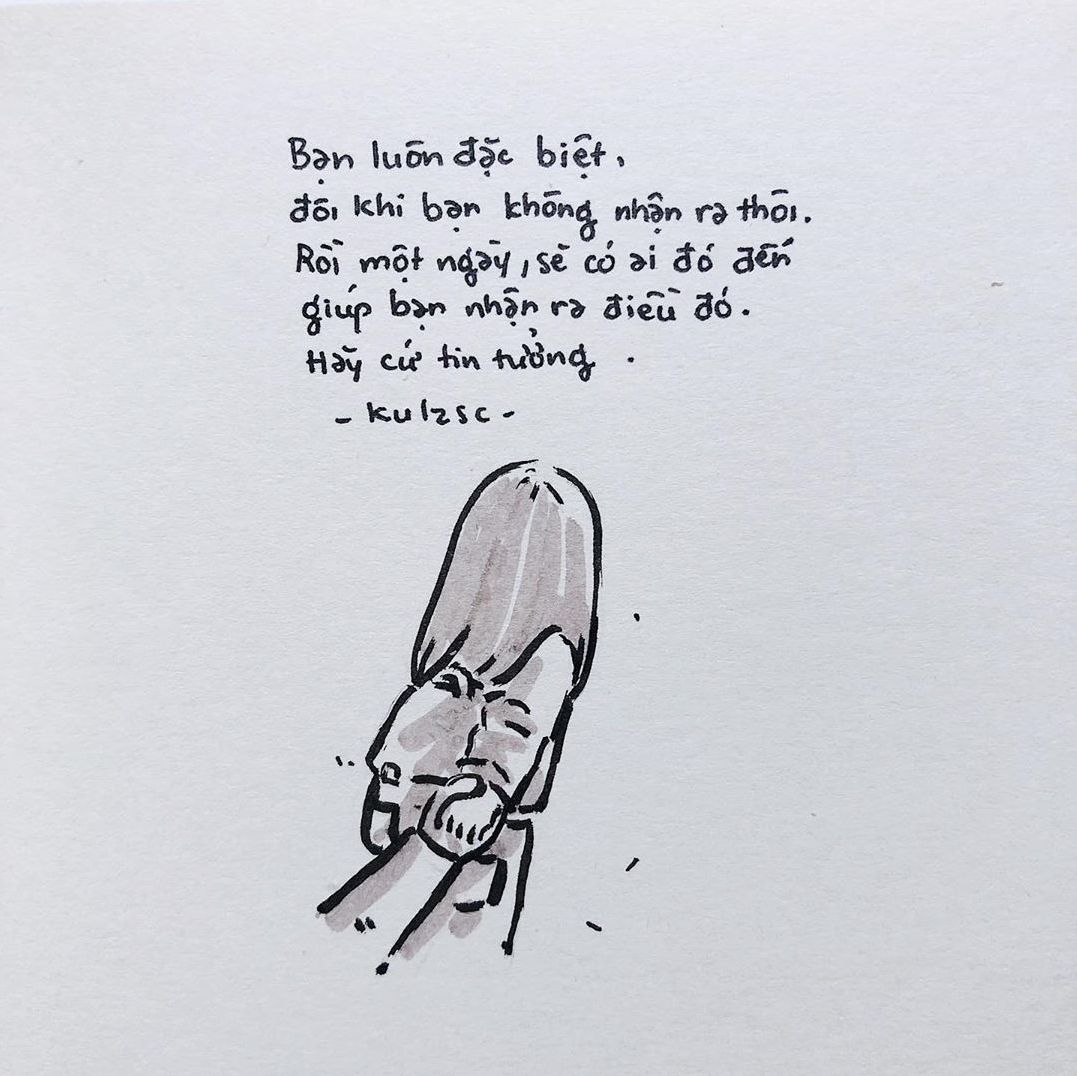 Bạn luôn đặc biệt,
đôi khi bạn không nhận ra thôi.
Rồi một ngày, sẽ có ai đó đến
giúp bạn nhận ra điều đó.
Hãy cứ tin tưởng .
- kulzsc -